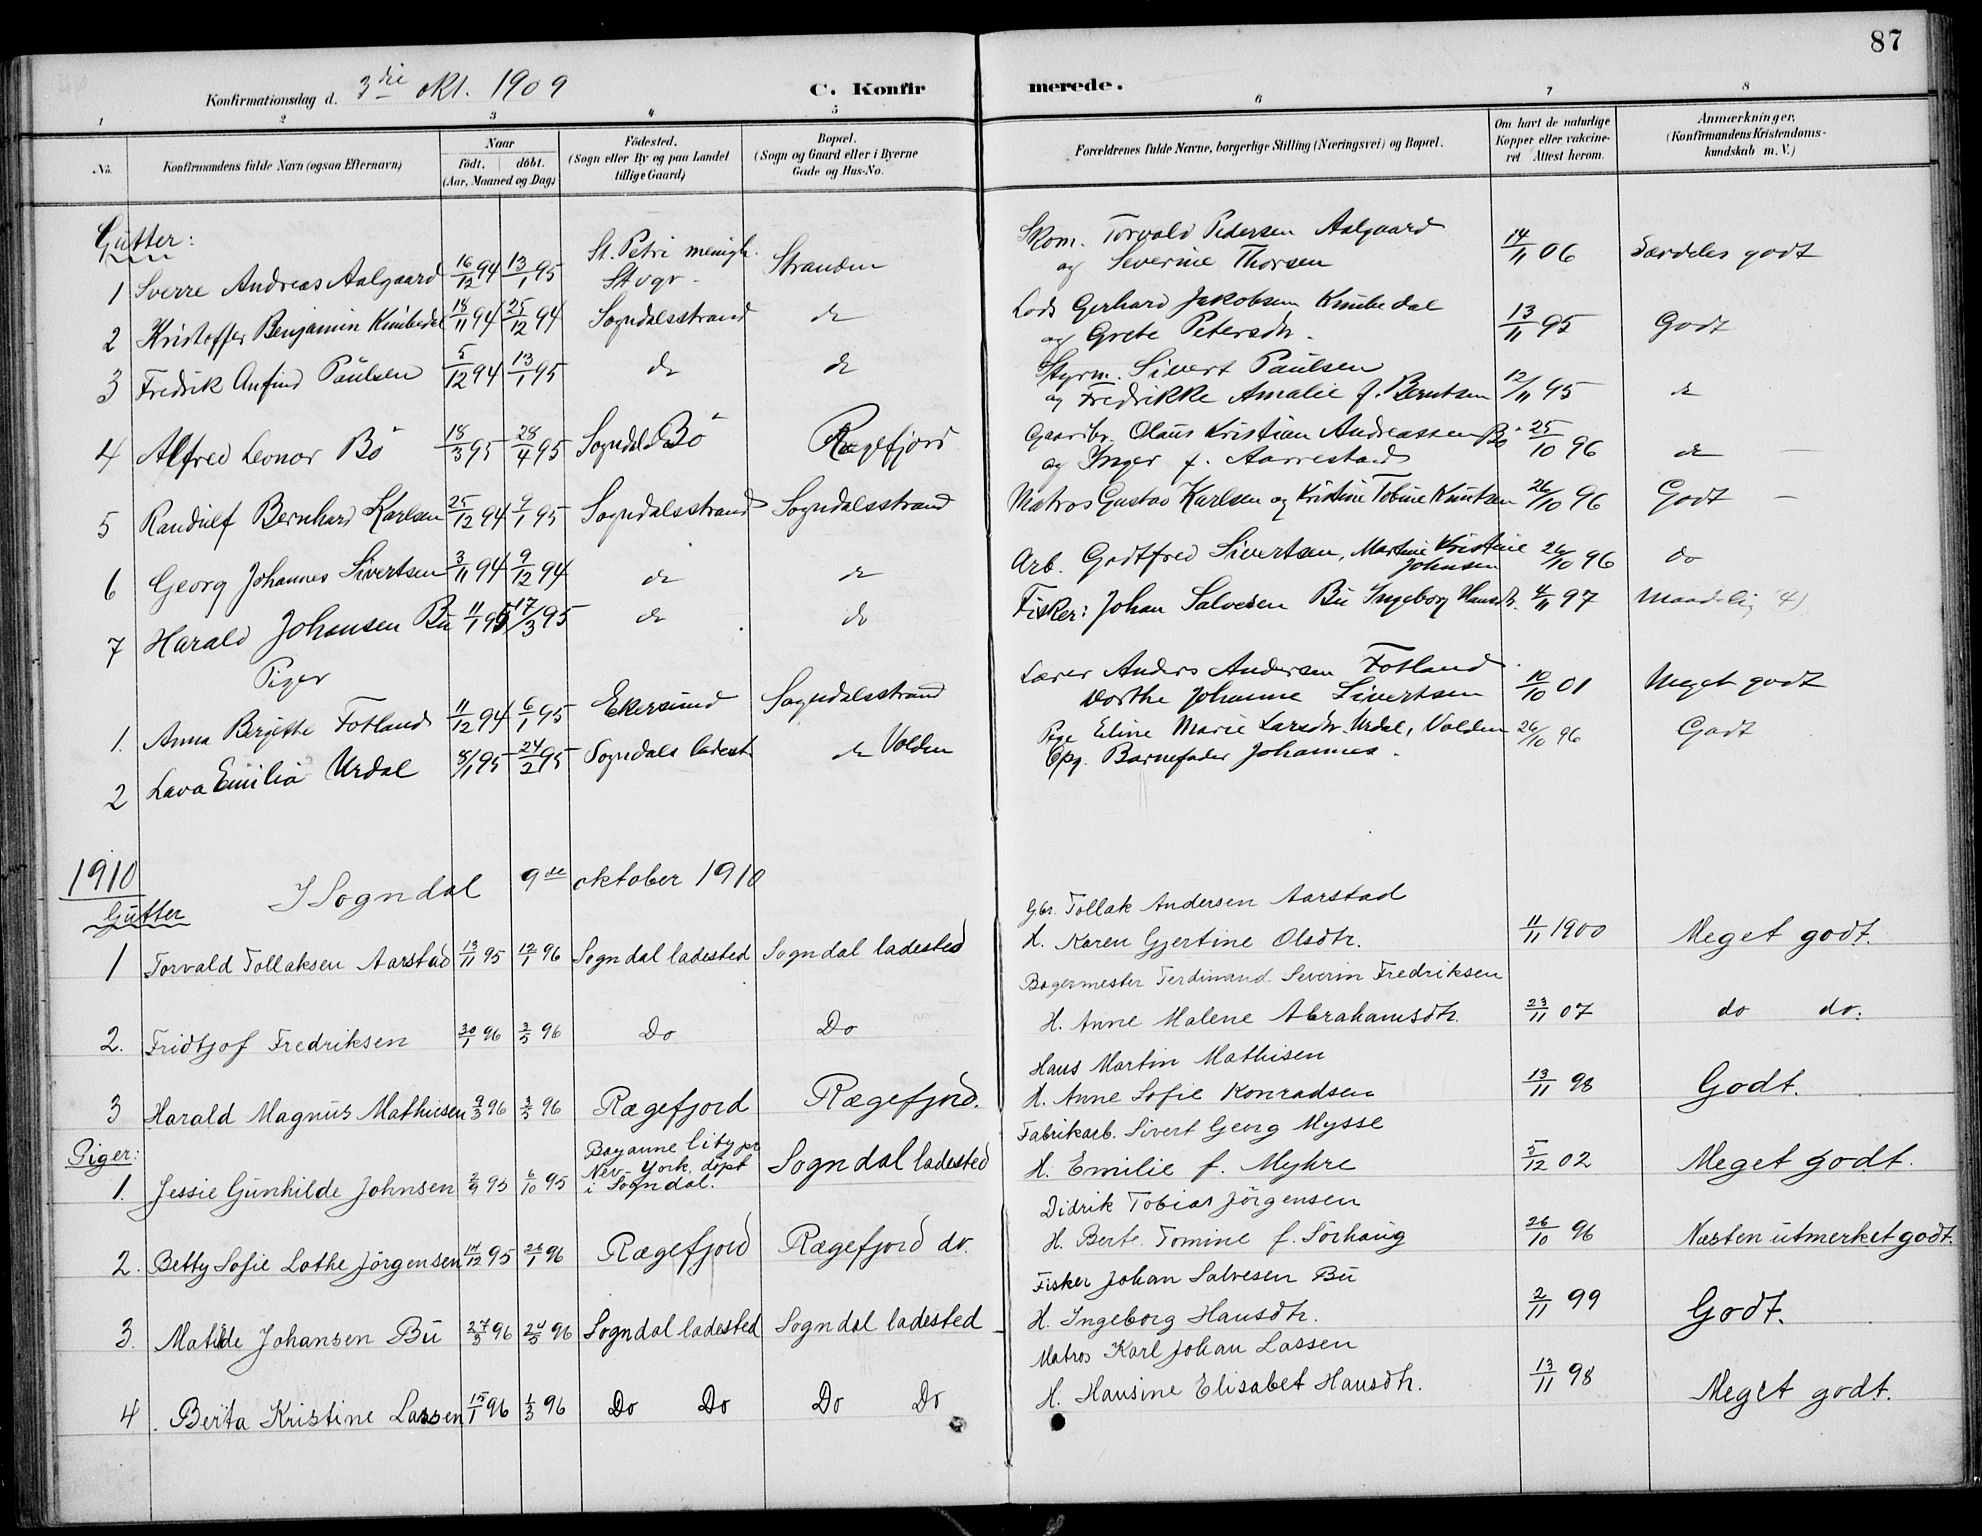 87
Konfirmationsdag d. 3die okt. 1909 C. Konfirmerede.
1 2 3 4 5 6 7 8
No. Konfirmandens fulde Navn (ogsaa Efternavn) Naar født. døbt. (Aar, Maaned og Dag) Fødested. (Sogn eller By og paa Landet tillige Gaard) Bopæl. (Sogn og Gaard eller i Byerne Gade og Hus-No. Forældrenes fulde Navne, borgerlige Stilling (Næringsvei) og Bopæl. Om havt de naturlige Kopper eller vakcineret. Attest herom. Anmærkninger. (Konfirmandens Kristendomskundskab m. V.)
Gutter:
1 Sverre Andreas Aalgaard 16/12 94 13/1 95 St. Petri menigh. Stvgr. Stranden Skom. Torvald Pedersen Aalgaard og Severine Thorsen 14/11 06 Særdeles godt
2 Kristoffer Benjamin Knubedal 18/11 94 25/12 94 Sogndalsstrand do Lods Gerhard Jakobsen Knubedal og Grete Petersdtr. 13/11 95 Godt
3 Fredrik Anfind Paulsen 5/12 94 13/1 95 do do Styrm. Sivert Paulsen og Fredrikke Amalie f. Berntsen 12/11 95 do
4 Alfred Leonor Bö 18/3 95 28/4 95 Sogndal Bö Rægefjord Gaardbr. Olaus Kristian Andreassen Bö og Inger f. Aarrestad 25/10 96 do
5 Randulf Bernhard Karlsen 25/12 94 9/1 95 Sogndalsstrand Sogndalsstrand Matros Gustav Karlsen og Kristine Tobine Knutsen 26/10 96 Godt
6 Georg Johannes Sivertsen 3/11 94 9/12 94 do do Arb. Godtfred Sivertsen, Martine Kristine Johnsen 26/10 96 do
7 Harald Johansen Bu 11/1 95 17/3 95 do do Fisker: Johan Salvesen Bu Ingeborg Hansdtr. 4/11 97 Maadelig (4)
Piger
1. Anna Bergitte Fotland 11/12 94 6/1 95 Ekersund Sogndalsstrand Lærer Anders Andersen Fotland Dorthe Johanne Sivertsen 10/10 01 Meget godt
2 Lava Emilia Urdal 8/1 95 24/2 95 Sogndals ladest. do Volden Pige Eline Marie Larsdtr. Urdal, Volden Opg. Barnefader Johannes. 26/10 96 Godt
1910 I Sogndal 9de oktober 1910
Gutter
1 Torvald Tollaksen Aarstad 13/11 95 12/1 96 Sogndal ladested Sogndal ladested Gbr. Tollak Andersen Aarstad H. Karen Gjertine Olsdtr. 11/11 1900 Meget godt.
2. Fridtjof Fredriksen 30/1 96 3/5 96 Do Do Bagermester Ferdinand Severin Fredriksen H. Anne Malene Abrahamsdtr. 23/11 07 do do.
3 Harald Magnus Mathiesen 9/3 96 3/5 96 Rægefjord Rægefjord. Hans Martin Mathisen H. Anne Sofie Konradsen 13/11 98 Godt.
Piger:
1. Jessie Gunhilde Johnsen 2/9 95 6/10 95 Bayonne City pr New-York, döpt i Sogndal. Sogndal ladested Fabrikarb. Sivert Georg Mysse H. Emilie f. Myhre 5/12 02 Meget godt.
2. Betty Sofie Lothe Jörgensen 14/12 95 26/1 96 Rægefjord Rægefjord do. Didrik Tobias Jörgensen H. Berte Tomine f. Sörhaug 26/10 96 Næsten utmerket godt.
3. Matilde Johansen Bu 27/3 96 24/5 96 Sogndal ladested Sogndal ladested Fisker Johan Salvesen Bu H. Ingeborg Hansdtr. 2/11 99 Godt.
4. Berta Kristine Lassen 15/1 96 1/3 96 Do Do Do Do Matros Karl Johan Lassen H. Hansine Elisabet Hansdtr. 13/11 98 Meget godt.